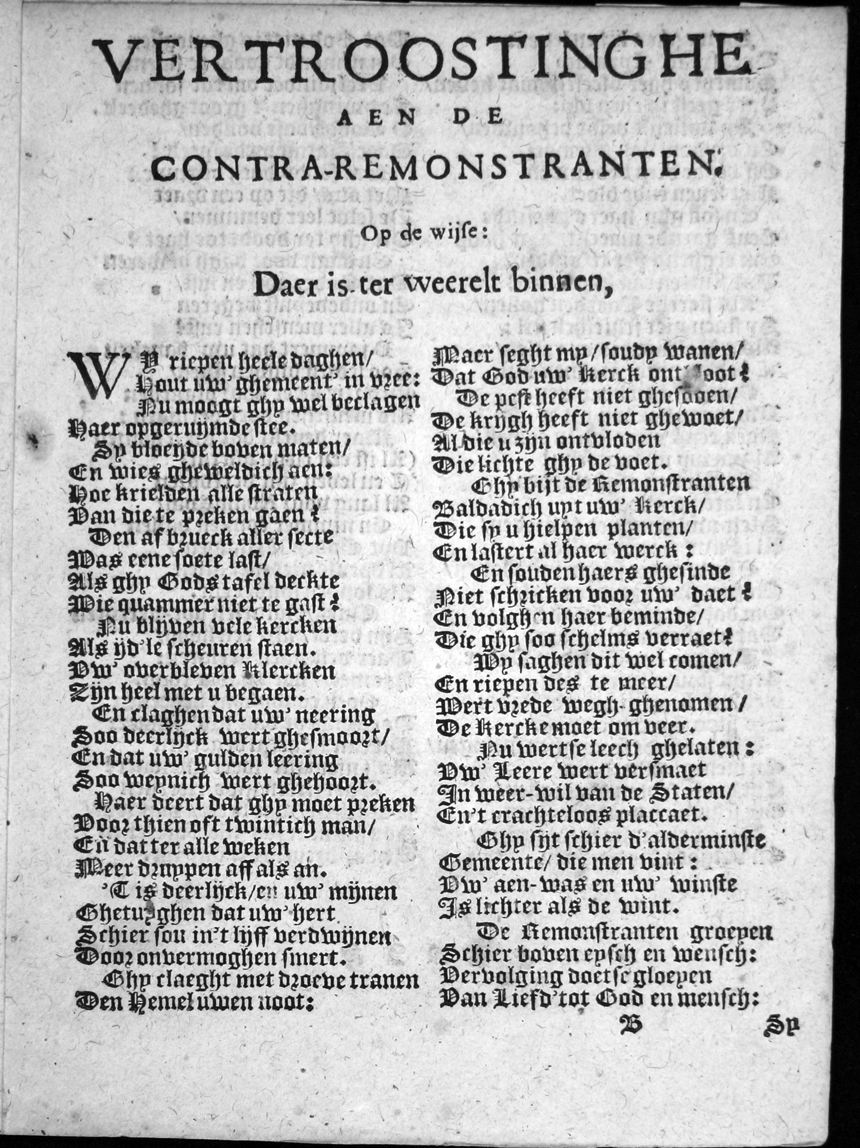 VERTROOSTINGHE
AEN DE
CONTRA-REMONSTRANTEN.
Op de wijse:
Daer is ter weerelt binnen,
WY riepen heele daghen/
Hout uw' ghemeent' in vree:
Nu moogt ghy wel beclagen
Haer opgeruijmde stee.
Sy bloeijde boven maten/
En wies gheweldich aen:
Hoe krielden alle straten
Van die te preken gaen?
Den afbrueck aller secte
Was eene soete last/
Als ghy Gods tafel deckte
Wie quammer niet te gast?
Nu blijven vele kercken
Als ijd'le scheuren staen.
Vw' overbleven Klercken
Zijn heel met u begaen.
En claghen dat uw' neering
Soo deerlijck wert ghesmoort/
En dat uw' gulden leering
Soo weynich wert ghehoort.
Haer deert dat ghy moet preken
Voor thien oft twintich man/
En datter alle weken
Meer druppen aff als an.
'T is deerlijck/en uw' mijnen
Ghetuyghen dat uw' hert
Schier sou in't lijff verdwijnen
Door onvermoghen smert.
Ghy claeght met droeve tranen
Den Hemel uwen noot:
Maer seght my/soudy wanen/
Dat God uw' Kerck ontbloot?
De pest heeft niet ghesboen/
De krijgh heeft niet ghewoet/
Al die u zijn ontvloden
Die lichte ghy de voet.
Ghy bijt de Remonstranten
Baldadich uyt uw' Kerck/
Die sy u hielpen planten/
En lastert al haer werck:
En souden haers ghesinde
Niet schricken voor uw' daet?
En volghen haer beminde/
Die ghy soo schelms verraet?
Wy saghen dit wel comen/
En riepen des te meer/
Wert vrede wegh ghenomen/
De Kercke moet om veer.
Nu wertse leech ghelaten:
Vw' Leere wert versmaet
In weer-wil van de Staten/
En't crachteloos placcaet.
Ghy sijt schier d'alderminste
Gemeente/ die men vint:
Vw' aen-was en uw' winste
Is lichter als de wint.
De Remonstranten groeyen
Schier boven eysch en wensch:
Vervolging doetse gloeyen
Van Liefd' tot God en mensch:
B
Sy